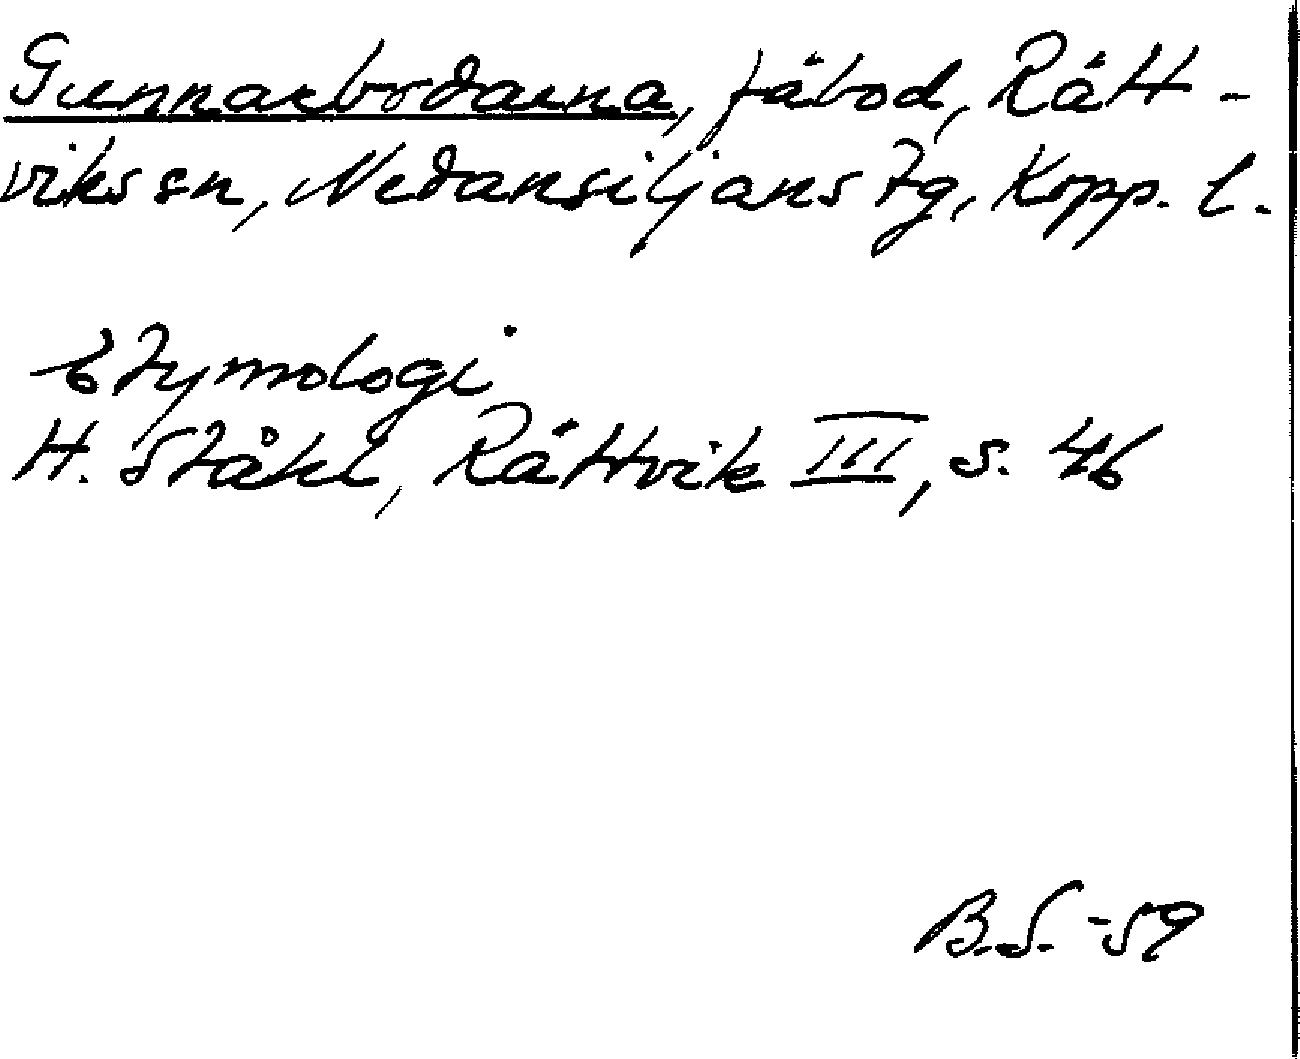 Gunnarbodarna, fäbod, Rätt-
viks sn, Nedansiljans tg, Kopp. l.
Etymologi
H. Ståhl, Rättvik III, s. 46
B.S. -59